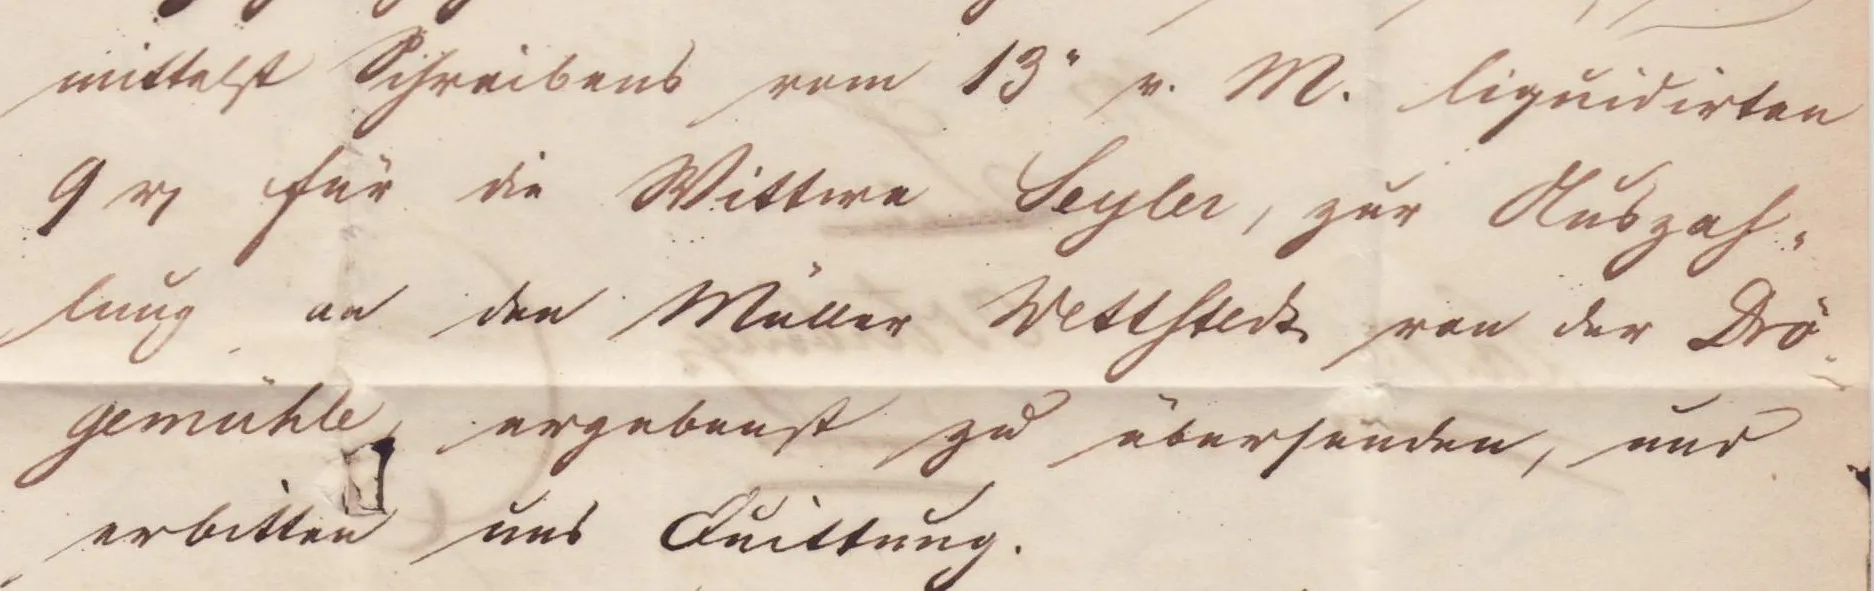 mittelst Schreibens vom 13" v. M. liquidirten
9 rℓ für die Wittwe Seyler, zur Auszah-
lung an den Müller Wettstedt von der Drö-
gemühle, ergebenst zu übersenden, und
erbitten uns Quittung.